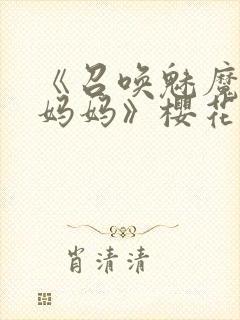 《召唤魅魔
妈妈》樱花
肖清清